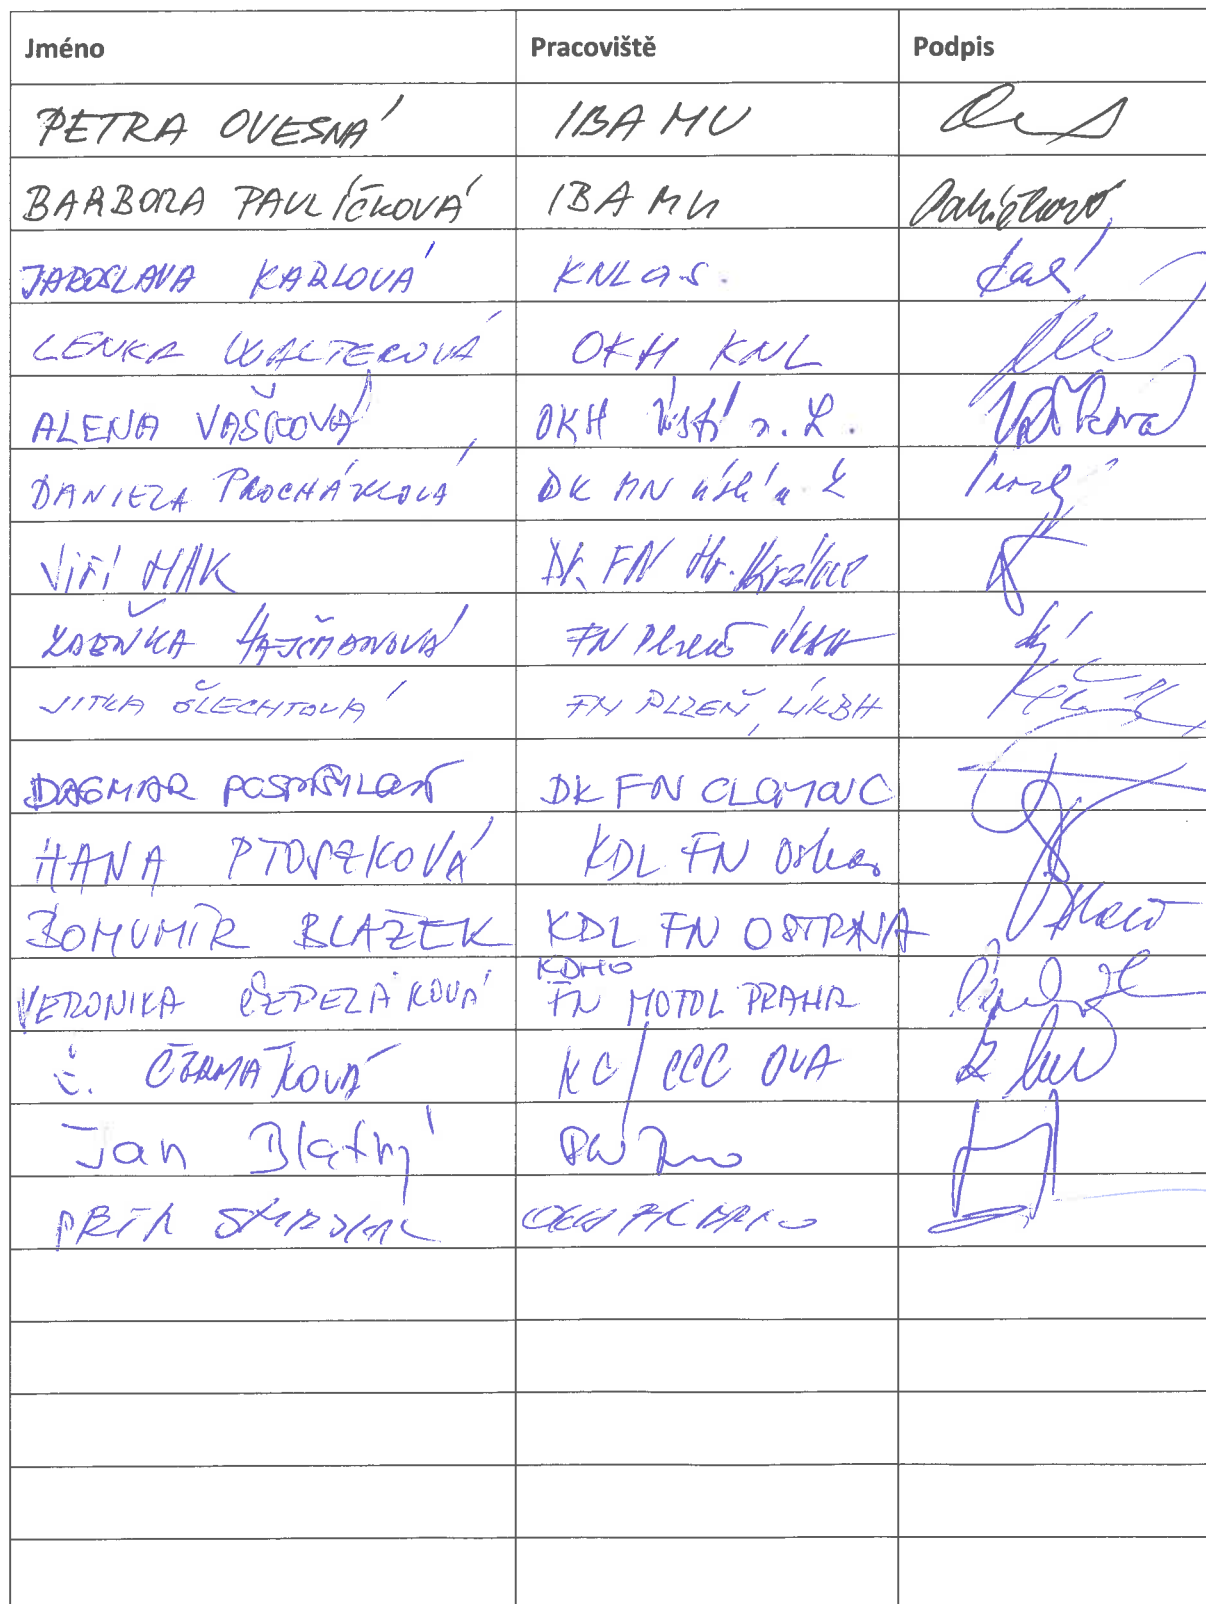 Jméno Pracoviště Podpis
PETRA OVESNÁ IBA MU
BARBORA PAVLÍČKOVÁ IBA MU Pavlíčková
JAROSLAVA KARLOVÁ KNL a.s.
LENKA WALTEROVÁ OKH KNL
ALENA VAŠKOVÁ OKH Ústí n. L. Vašková
DANIELA PROCHÁZKOVÁ DK MN Ústí n. L
JIŘÍ HAK DK FN Hr. Králové
ZDEŇKA HAJŠMANOVÁ FN Plzeň ÚKBH
JITKA ŠLECHTOVÁ FN PLZEŇ, ÚKBH
DAGMAR POSPÍŠILOVÁ DK FN OLOMOUC
HANA PTOSZKOVÁ KDL FN Ostrava
BOHUMÍR BLAŽEK KDL FN OSTRAVA
KDHO
VERONIKA ČEPELÁKOVÁ FN MOTOL PRAHA
ČERMÁKOVÁ KC/CCC OVA
Jan Blatný Brno
PETR SMEJKAL FN BRNO